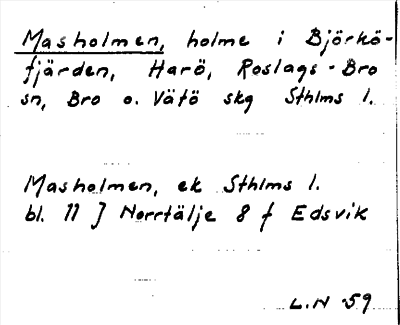 Masholmen, holme i Björkö-
fjärden, Harö, Roslags-Bro
sn, Bro o. Vätö skg Sthlms l.
Masholmen, ek Sthlms l.
bl. 11 J Norrtälje 8 f Edsvik
L.N 59